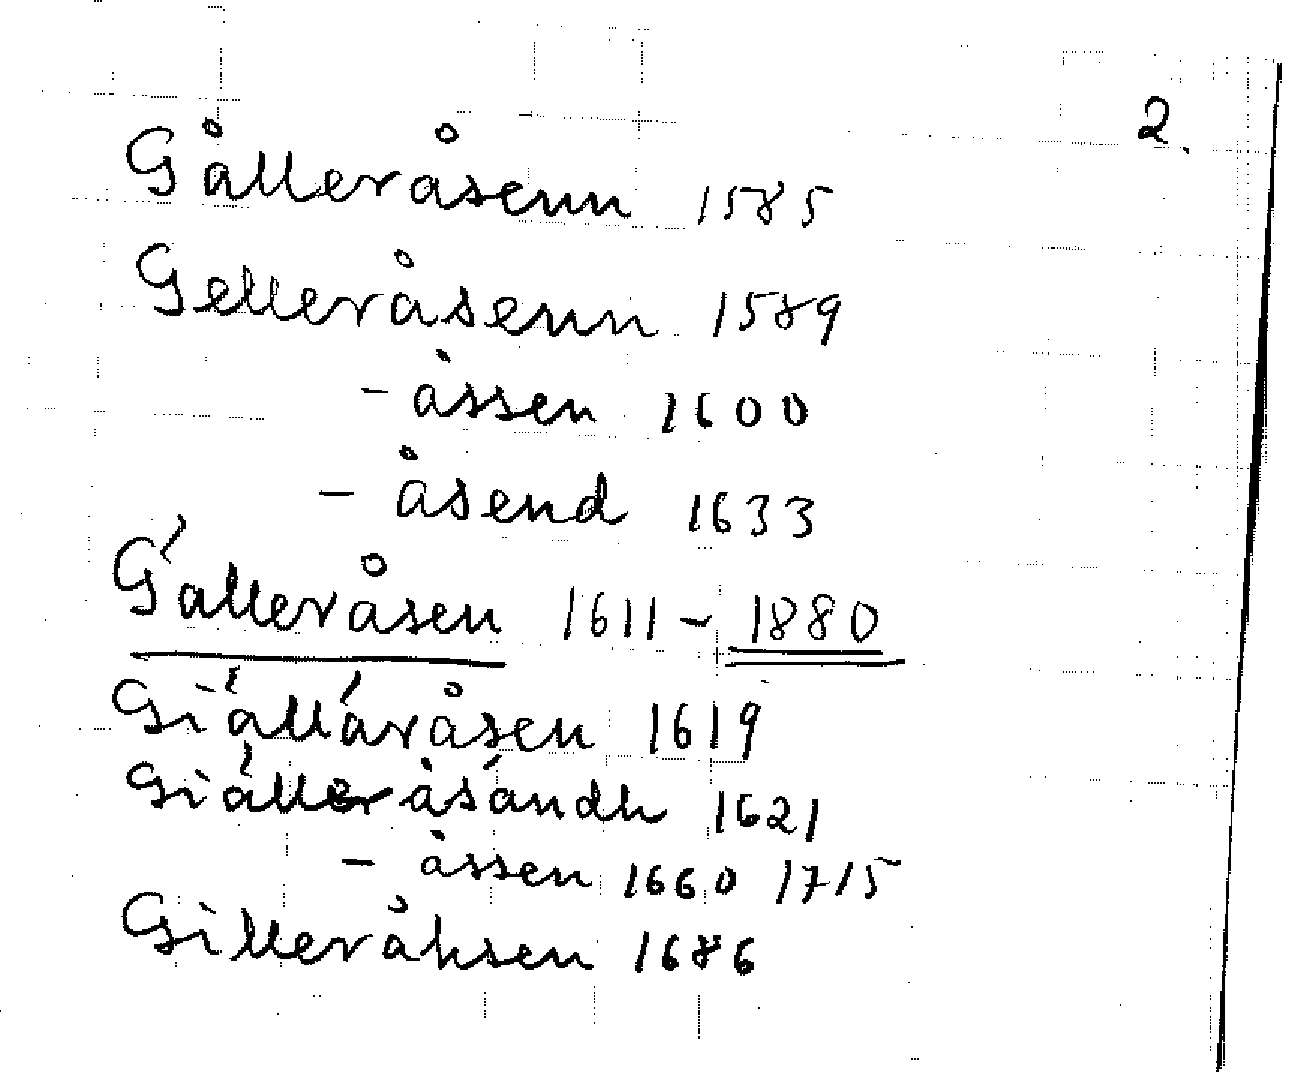 2.
Gålleråsenn 1585
Gelleråsenn 1589
- åssen 1600
- åsend 1633
Gälleråsen 1611 - 1880
Giälläråsen 1619
Giälleråsändh 1621
- åssen 1660 1715
Gilleråhsen 1686